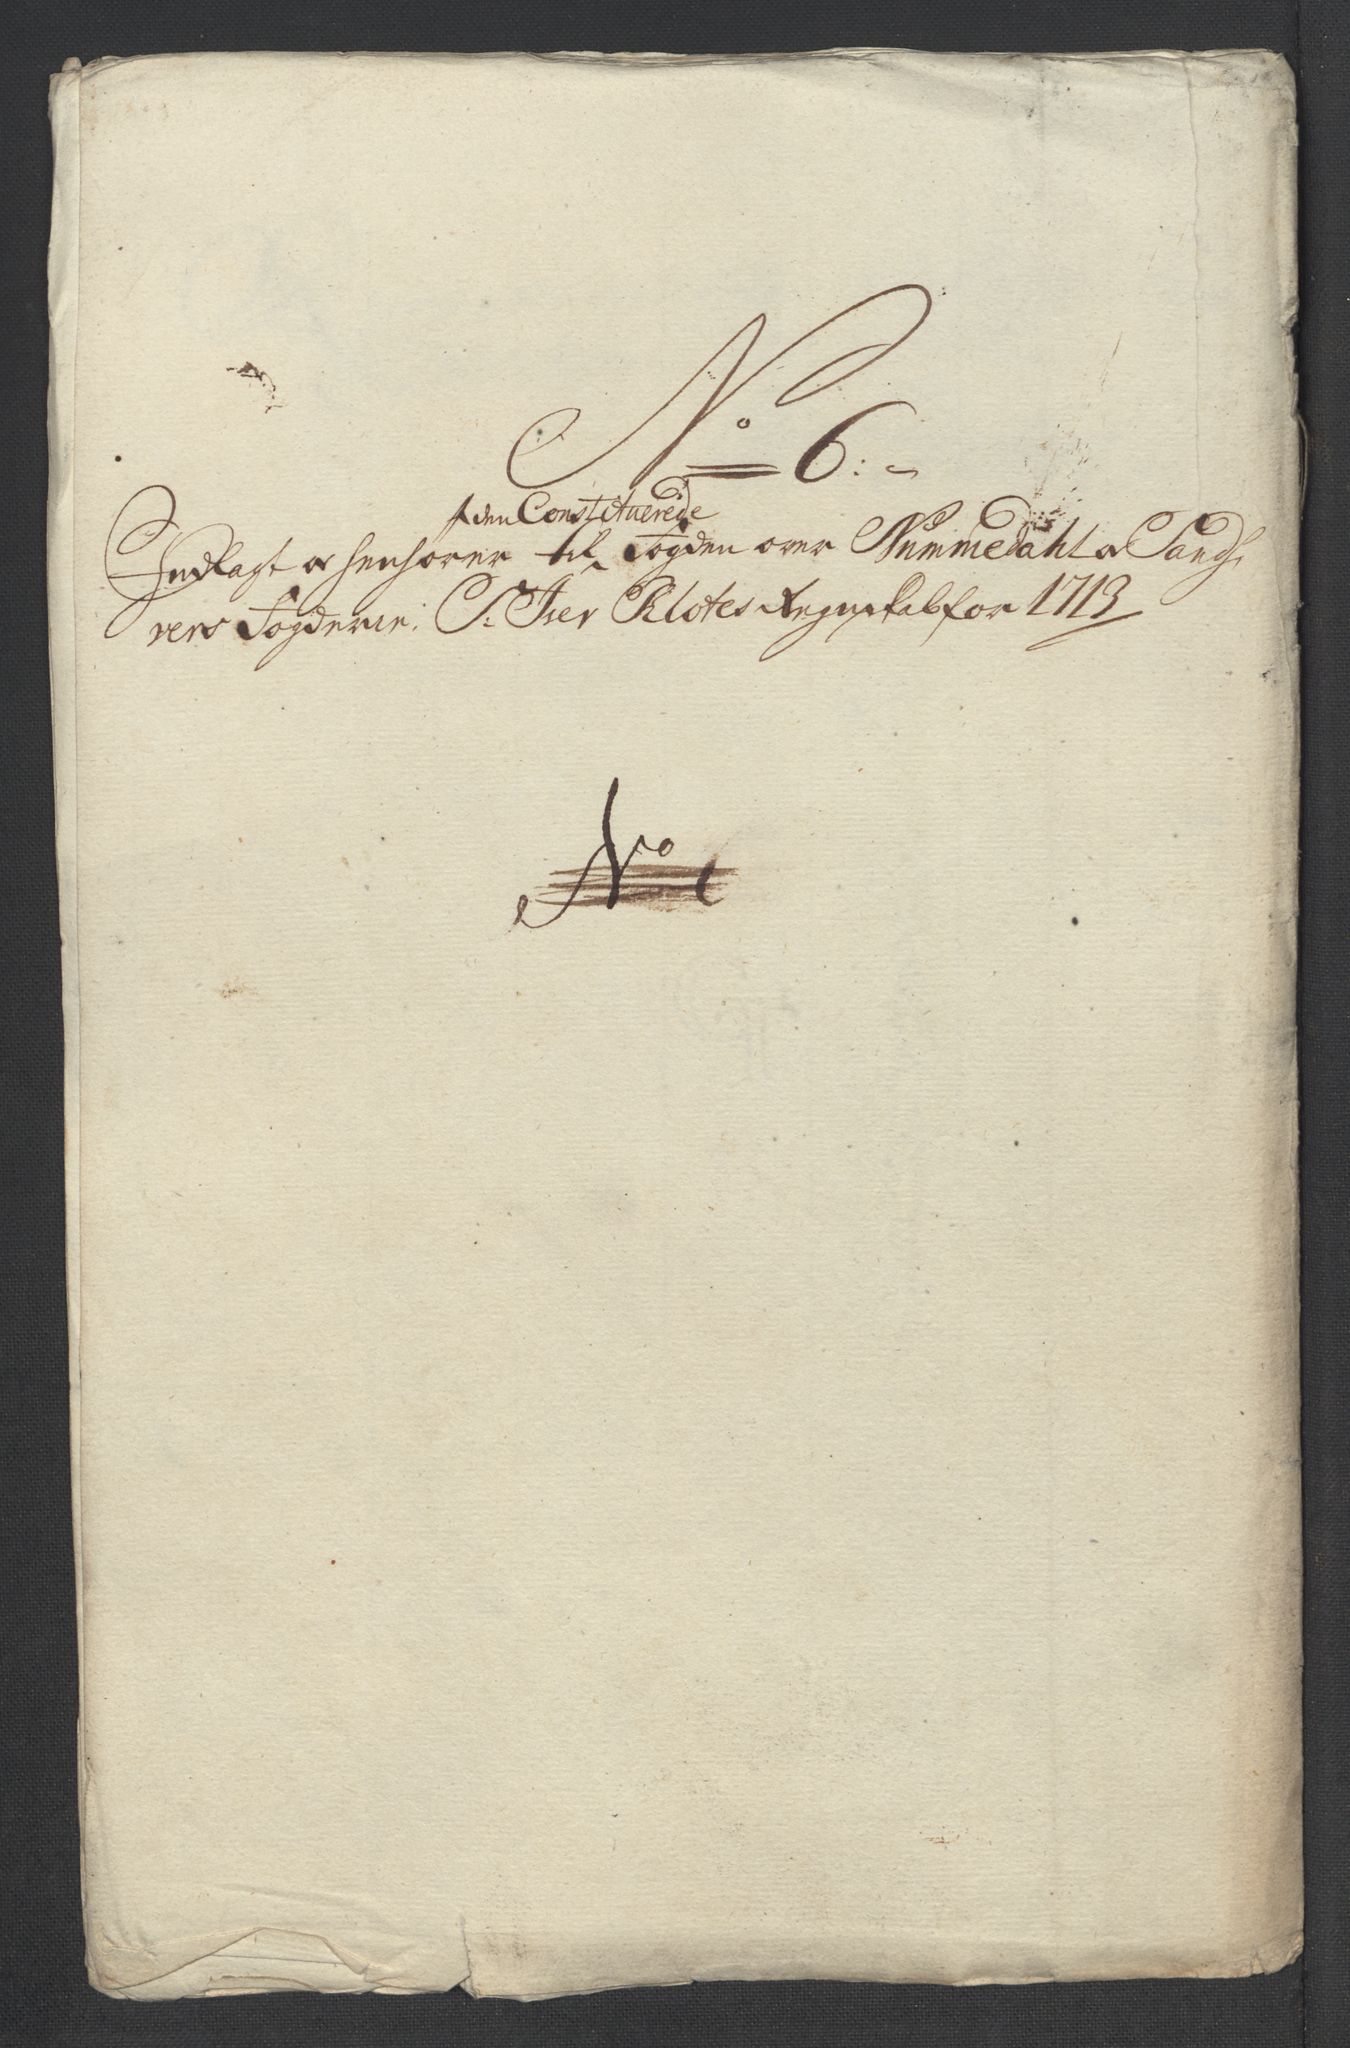 No 6:
den Constituerede
Indlagt og henhører til Fogden over Nummedahl og Sandß
vers Fogderie, S. Iver Klotes Regnskab for 1713
No